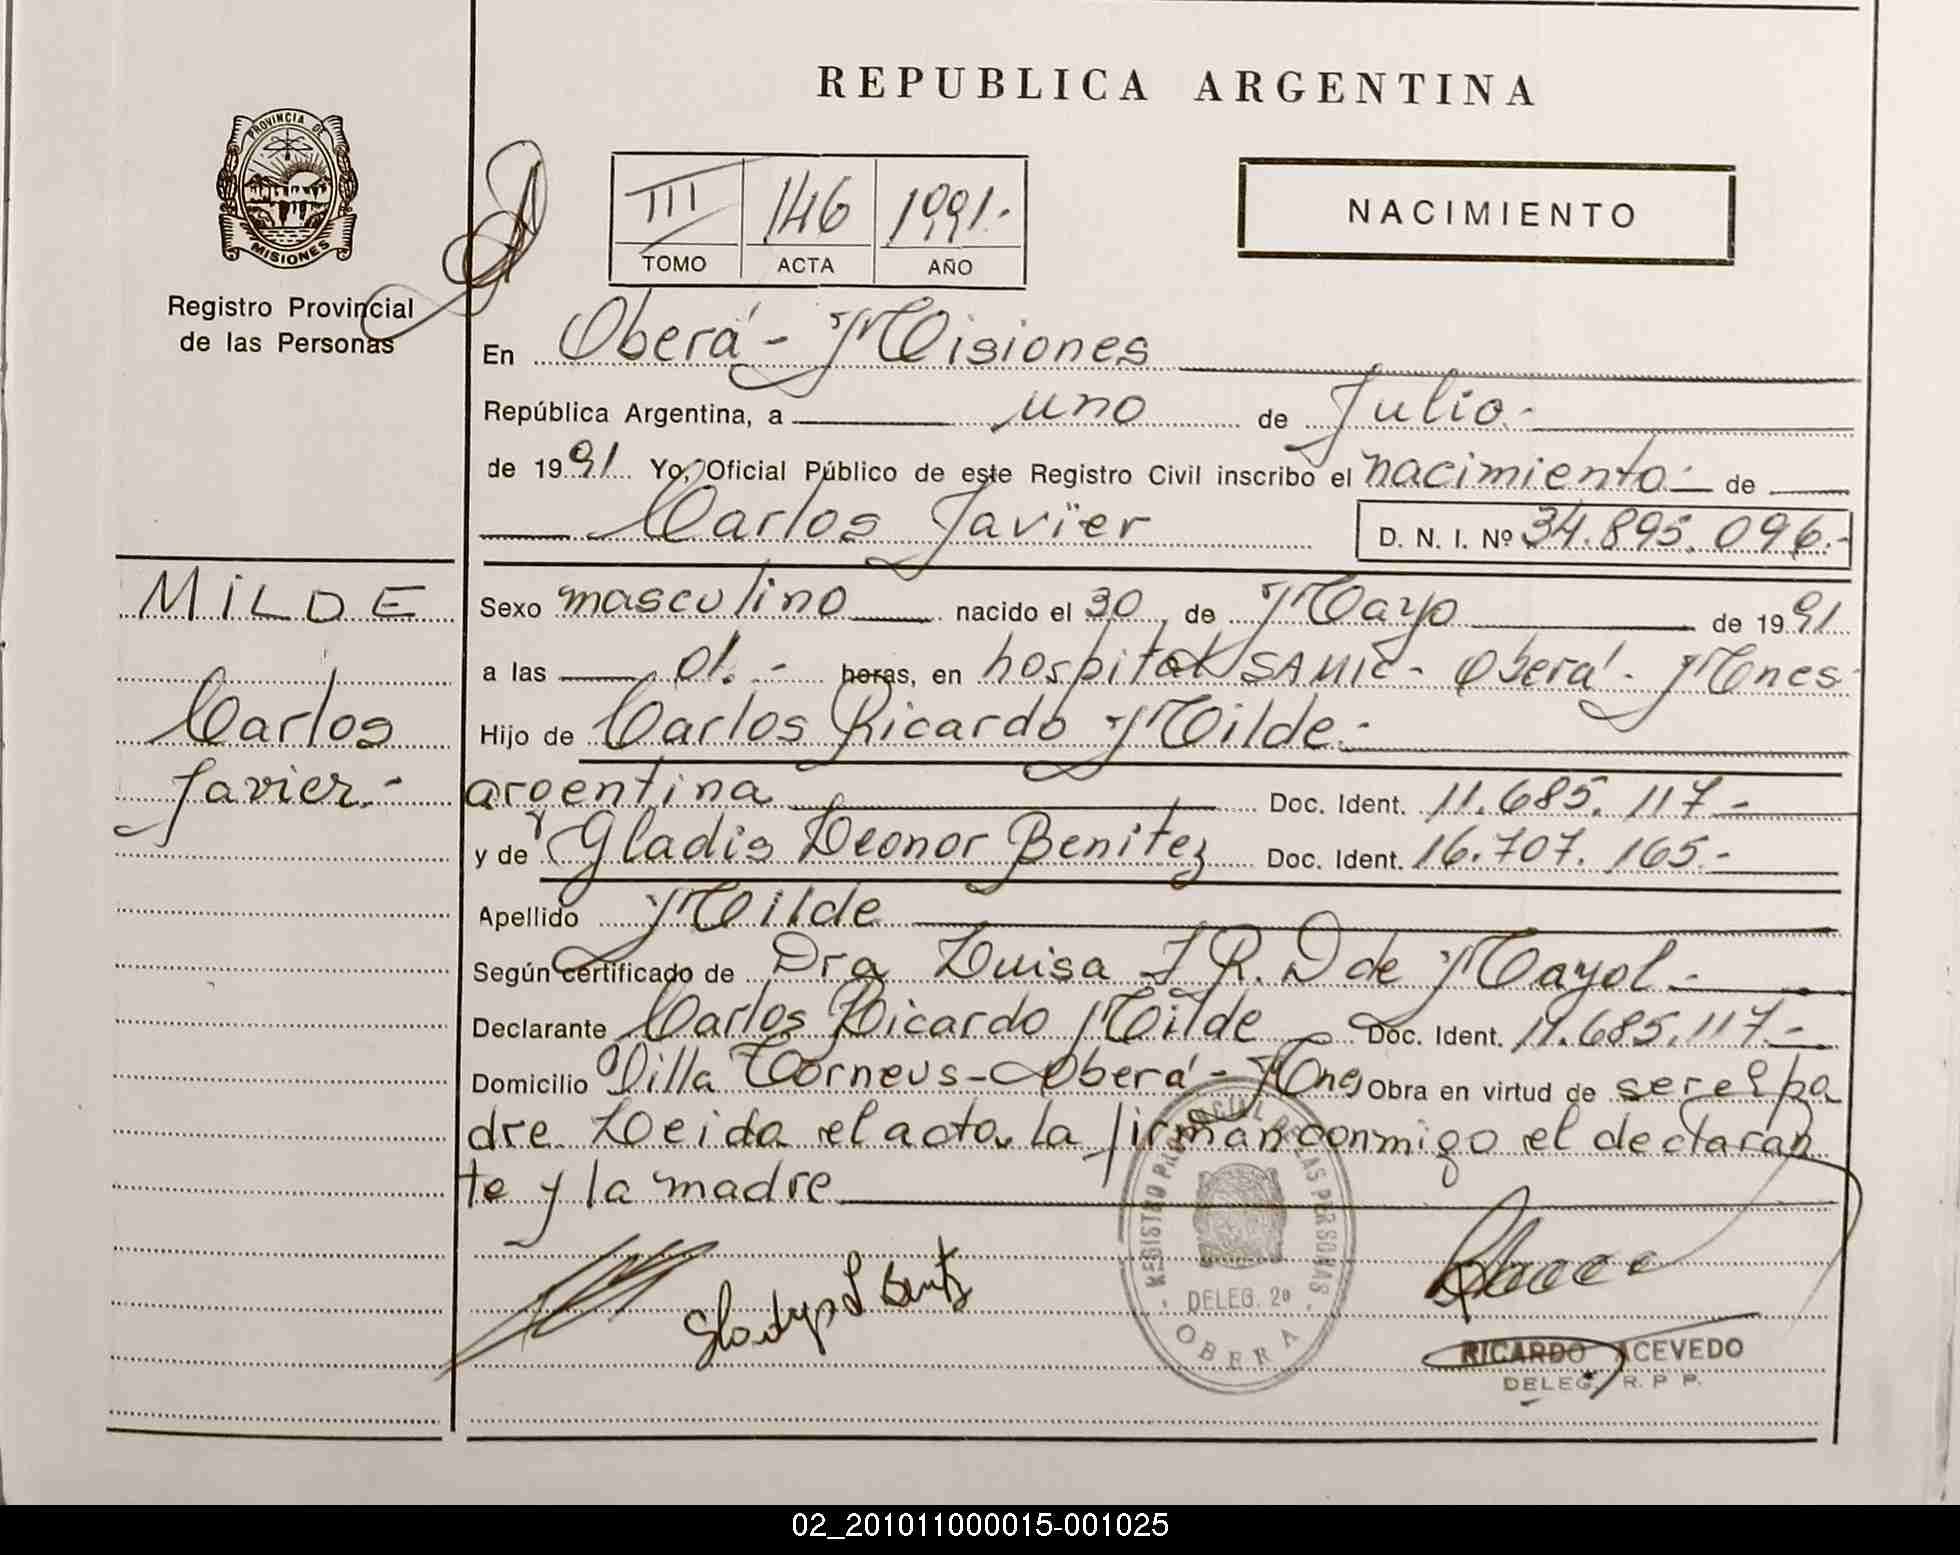 REPUBLICA ARGENTINA
PROVINCIA DE MISIONES
Registro Provincial
de las Personas
III 146 1991.-
TOMO ACTA AÑO
NACIMIENTO
En Oberá - Misiones
República Argentina, a uno de Julio.-
de 1991 Yo, Oficial Público de este Registro Civil inscribo el nacimiento.- de
Carlos Javier D. N. I. Nº 34.895.096.-
MILDE
Carlos
Javier.-
Sexo masculino nacido el 30 de Mayo de 1991
a las 01.- horas, en hospital SAMIC - Oberá - Mnes
Hijo de Carlos Ricardo Milde.-
argentina Doc. Ident. 11.685.117-
y de Gladis Leonor Benitez Doc. Ident. 16.707.165.-
Apellido Milde
Según certificado de Dra Luisa J R. D de Mayol-
Declarante Carlos Ricardo Milde Doc. Ident. 11.685.117.-
Domicilio Villa Torneus - Oberá - Mnes Obra en virtud de ser el pa
dre Leida el acta la firman conmigo el declaran
te y la madre
Gladys L Benitz
REGISTRO PROVINCIAL DE LAS PERSONAS
DELEG. 2ª
OBERA
RICARDO ACEVEDO
DELEG. R. P. P.
02_201011000015-001025